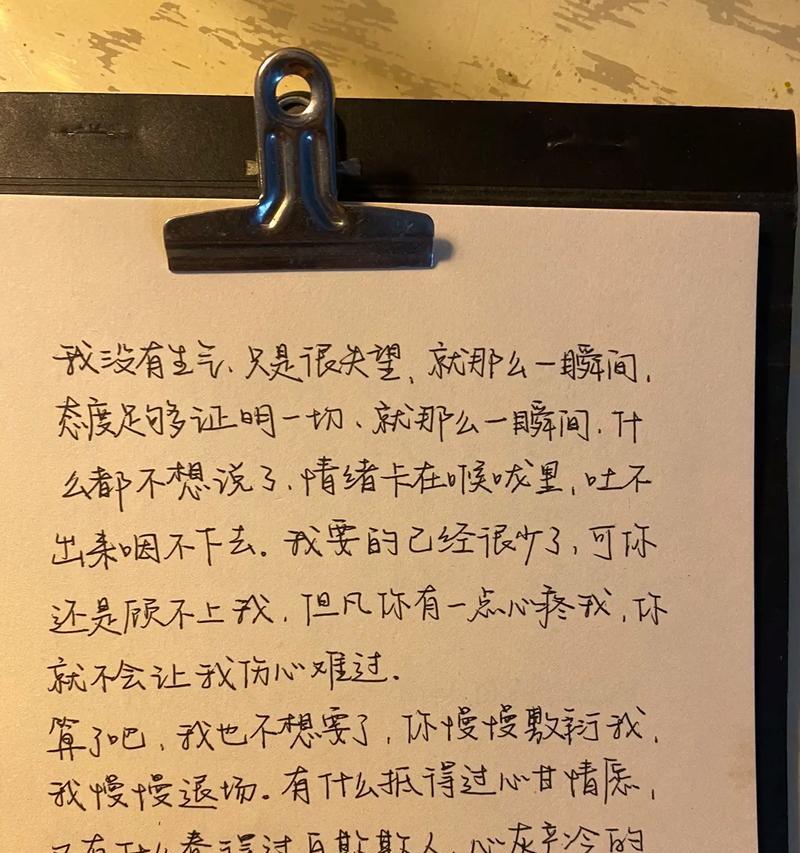 我没有生气、只是很失望、就那么一瞬间，
态度足够证明一切、就那么一瞬间，什
么都不想说了、情绪卡在喉咙里，吐不
出来咽不下去。我要的已经很少了，可你
还是顾不上我，但凡你有一点心疼我，你
就不会让我伤心难过。
算了吧，我也不想要了，你慢慢敷衍我，
我慢慢退场。有什么抵得过心甘情愿，
又有什么